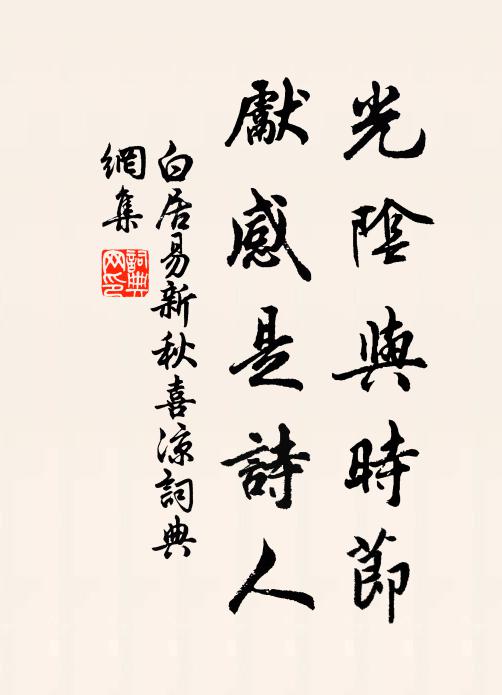 光陰與時節
獻感是詩人
白居易新秋喜凉詞典
網集
詞典
网印